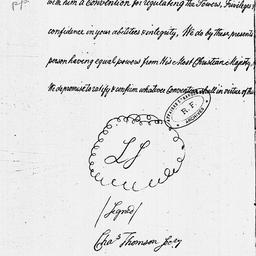 with him a Convention for regulating the Powers, Privileges &
confidence in your abilities & integrity, We do by these presents
person having equal powers from His Most Christian Majesty
We do promise to ratify & confirm whatever Convention shall in virtue of this
R.F.
ARCHIVES
LS
(Signed)
Chas Thomson Secy